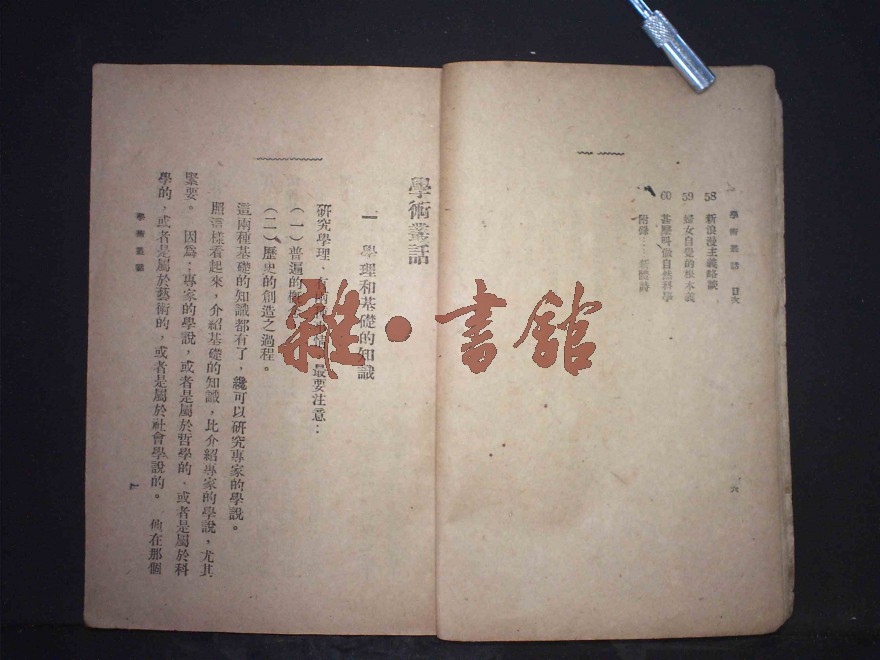 學術叢話 目次 六
58 新浪漫主義略談
59 婦女自覺的根本義
60 甚麼叫做自然科學
附錄：
學術叢話
一 學理和基礎的知識
研究學理，有 最要注意：
(一)普遍的概
(二)歷史的創造之過程。
這兩種基礎的知識都有了，纔可以研究專家的學說。
照這樣看起來，介紹基礎的知識，比介紹專家的學說，尤其
緊要。 因為：專家的學說，或者是屬於哲學的、或者是屬於科
學的，或者是屬於藝術的，或者是屬於社會學說的。 他在那個
學術叢話 一
雜·書館